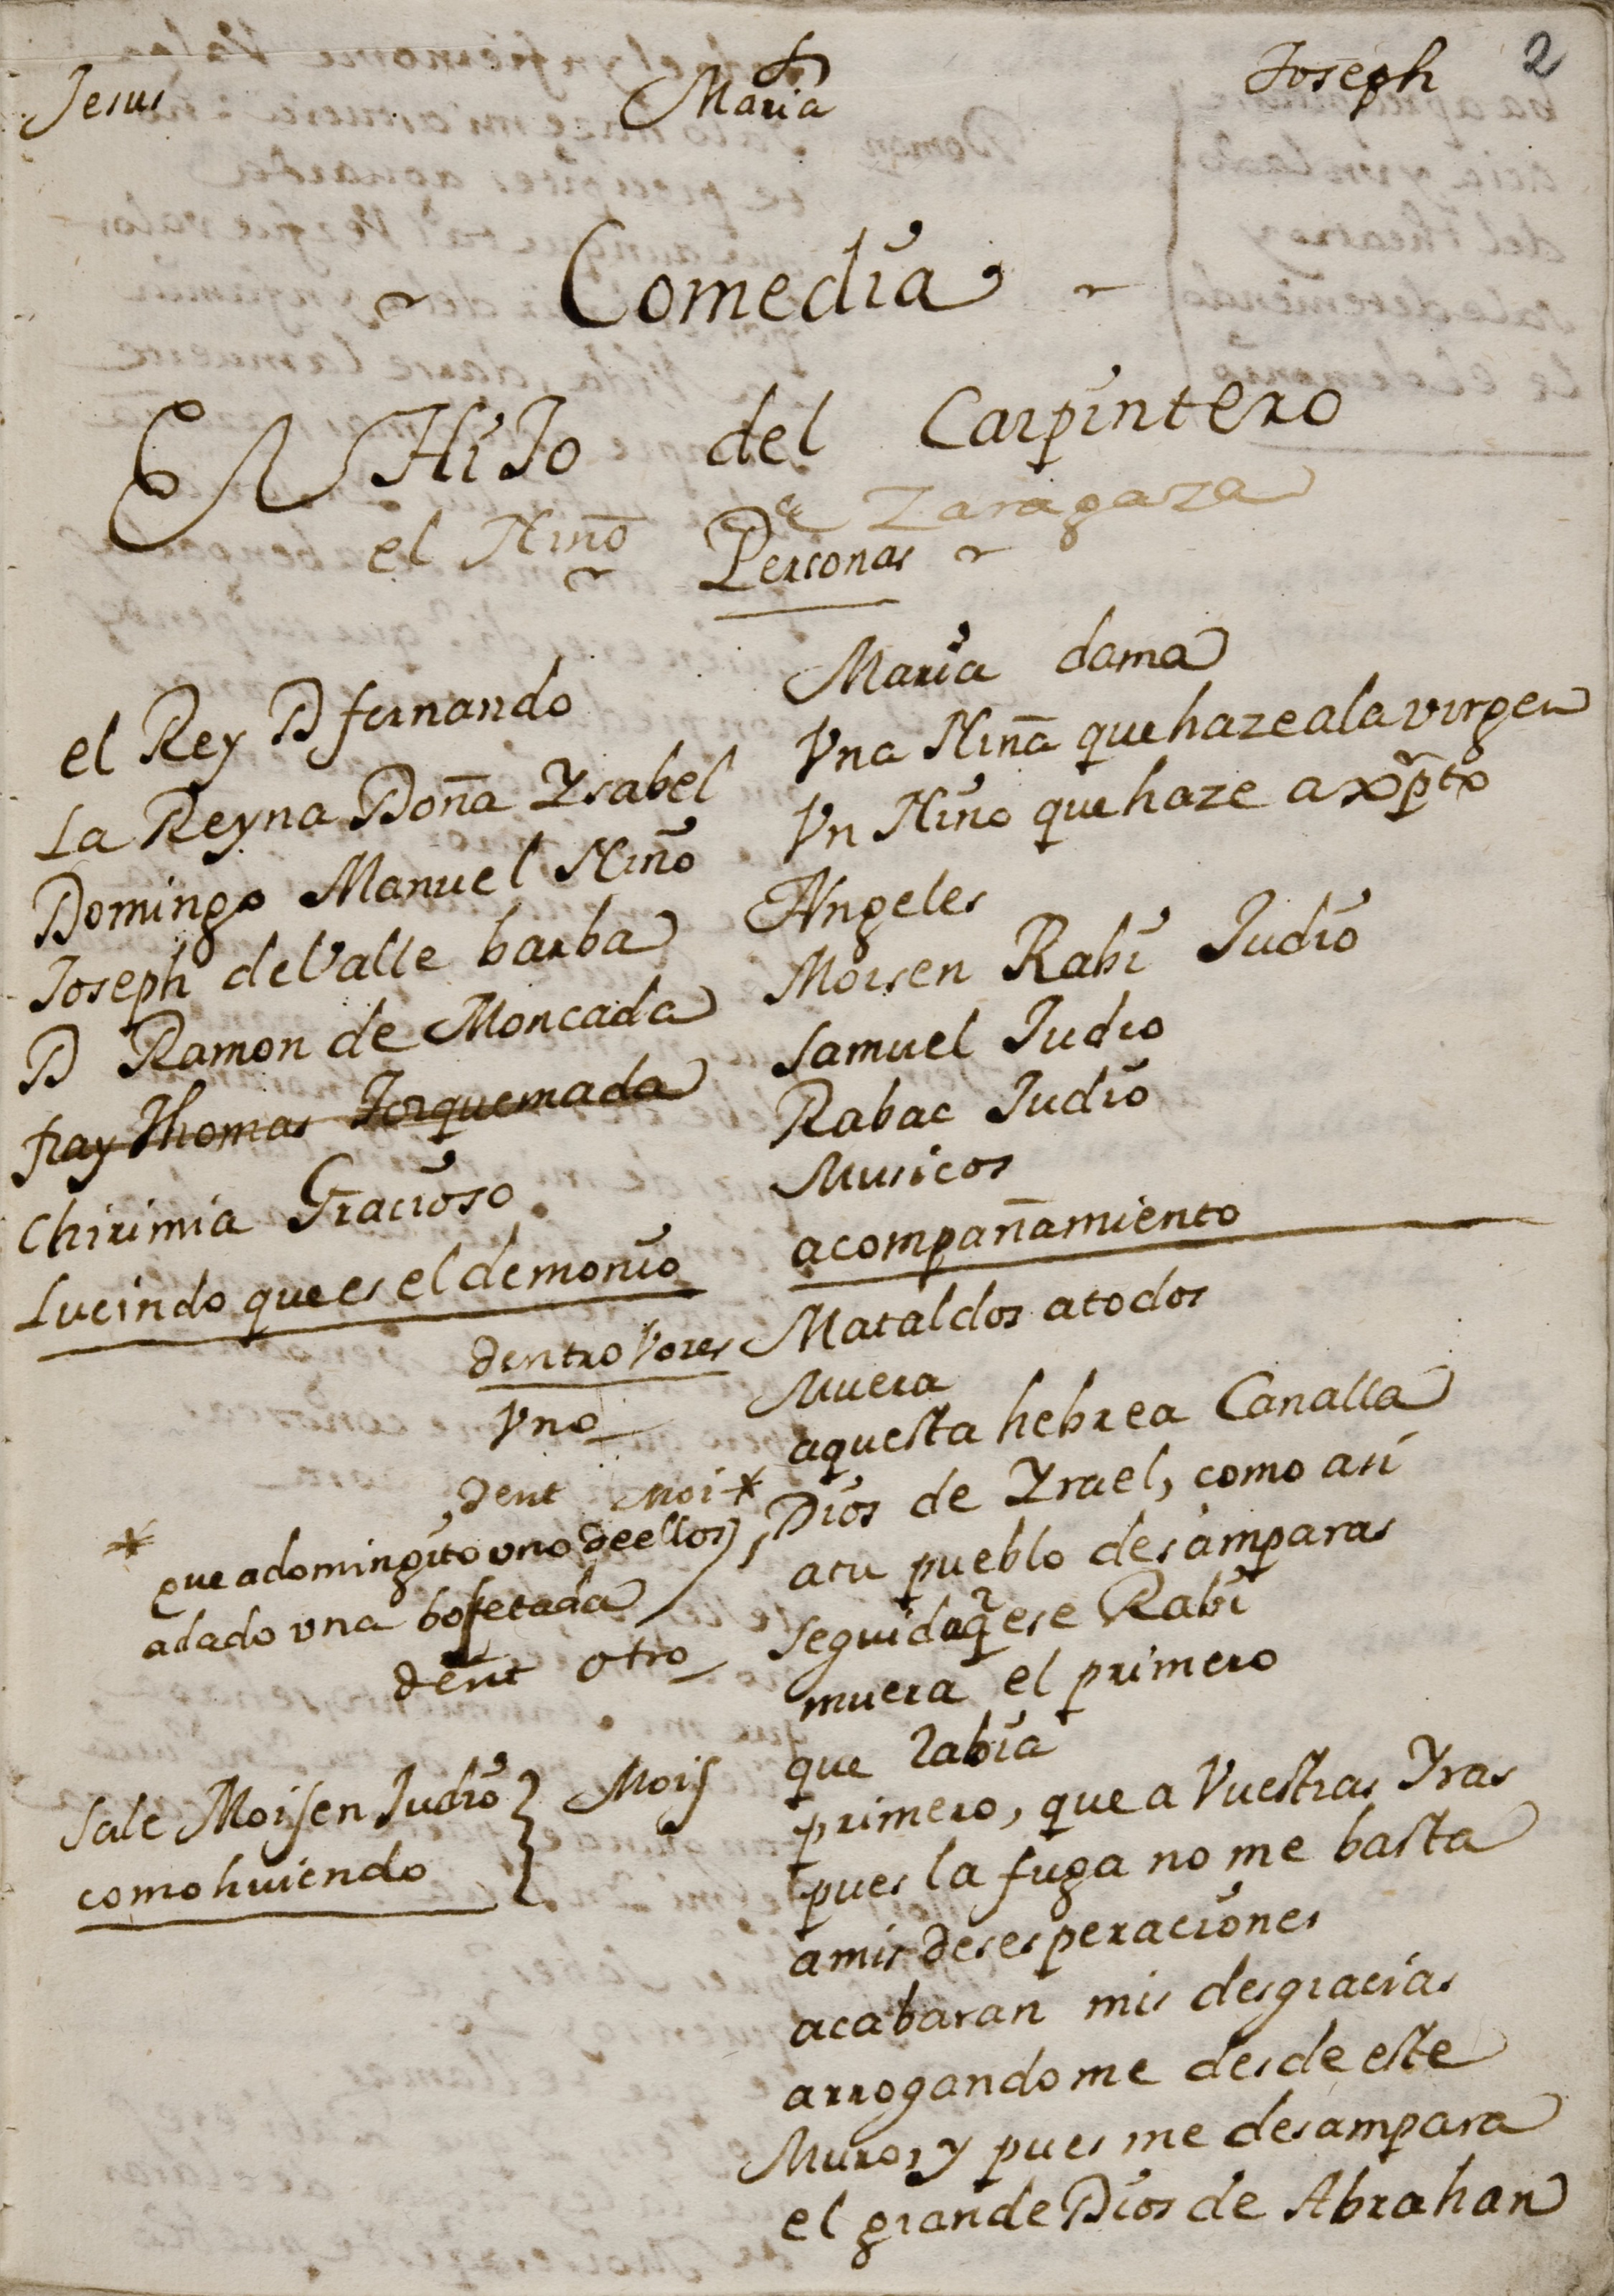 Jesus Maria Joseph 2
Comedia
El HiJo del Carpintero
el Niño de Zaragaza
Personas
el Rey D fernando
La Reyna Doña Ysabel
Domingo Manuel Niño
Joseph del Valle barba
D Ramon de Moncada
fray Thomas Torquemada
Chirimia Gracioso
Lucindo que es el demonio
Maria dama
Vna Niña que haze a la virgen
Vn Niño que haze a xp̃to
Angeles
Moisen Rabi Judio
Samuel Judio
Rabac Judio
Musicos
acompañamiento
dentro Vozes Mataldos atodos
Vno Muera
aquesta hebrea Canalla
Dent Moi * Dios de Yrael, como asi
* que a domingito uno de ellos
a dado vna bofetada
atu pueblo desamparas
dent otro seguid q ese Rabi
muera el primero
que rabia
Sale Moisen Judio
como huiendo
Mois primero, que a Vuestras Yras
pues la fuga no me basta
amis desesperaciones
acabaran mis desgracias
arrogandome desde este
Muro, y pues me desampara
el grande Dios de Abrahan